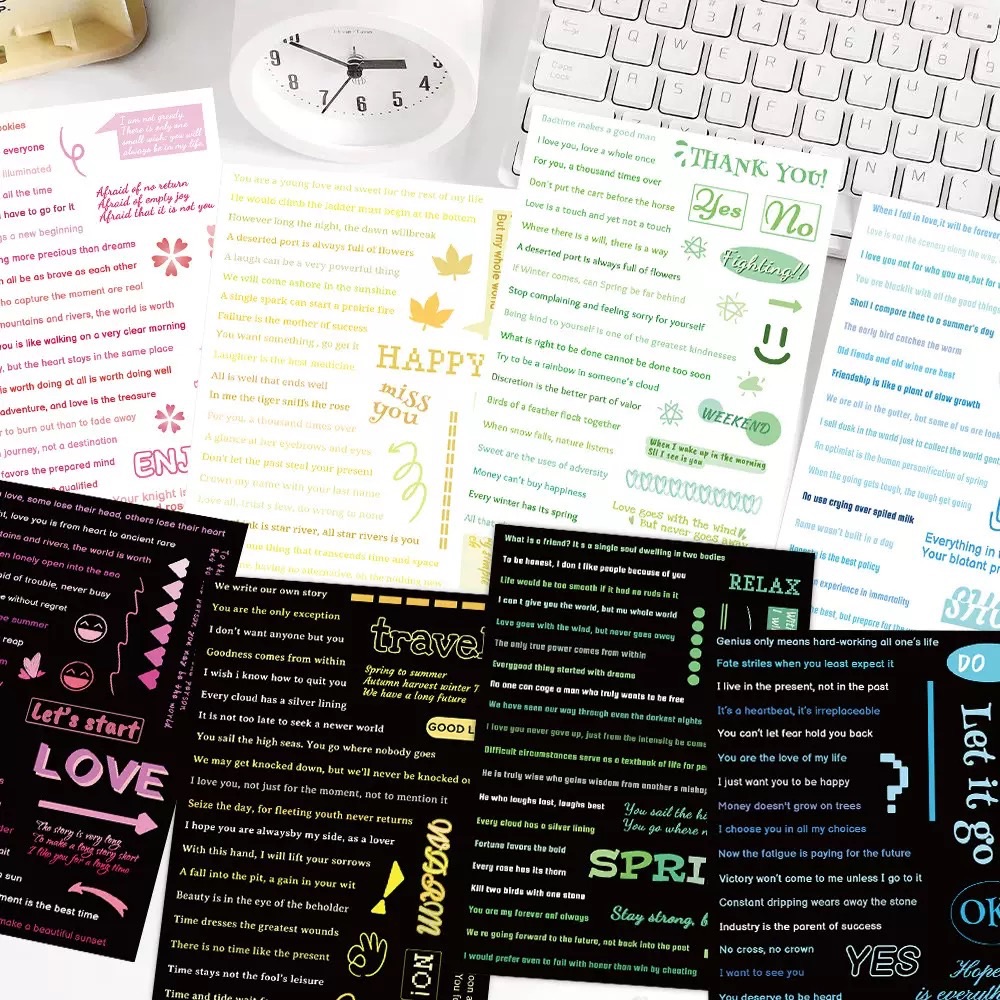 ookies
everyone
illuminated
all the time
have to go for it
gs a new beginning
ing more precious than dreams
n all be as brave as each other
ho capture the moment are real
mountains and rivers, the world is worth
you is like walking on a very clear morning
p, but the heart stays in the same place
is worth doing at all is worth doing well
adventure, and love is the treasure
r to burn out than to fade away
journey, not a destination
favors the prepared mind
qualified
I am not greedy.
There is only one
small wish: you will
always be in my life.
Afraid of no return
Afraid of empty joy
Afraid that it is not you
ENJ
Your knight in
You are a young love and sweet for the rest of my life
He would climb the ladder must begin at the bottom
However long the night, the dawn willbreak
A deserted port is always full of flowers
A laugh can be a very powerful thing
We will come ashore in the sunshine
A single spark can start a prairie fire
Failure is the mother of success
You want something, go get it
Laughter is the best medicine
All is well that ends well
In me the tiger sniffs the rose
For you, a thousand times over
A glance at her eyebrows and eyes
Don't let the past steal your present
Crown my name with your last name
Love all, trust a few, do wrong to none
nk is star river, all star rivers is you
me thing that transcends time and space
But my whole world
HAPPY
miss
you
Badtime makes a good man
I love you, love a whole once
For you, a thousand times over
Don't put the cart before the horse
Love is a touch and yet not a touch
Where there is a will, there is a way
A deserted port is always full of flowers
If Winter comes, can Spring be far behind
Stop complaining and feeling sorry for yourself
Being kind to yourself is one of the greatest kindnesses
What is right to be done cannot be done too soon
Try to be a rainbow in someone's cloud
Discretion is the better part of valor
Birds of a feather flock together
When snow falls, nature listens
Sweet are the uses of adversity
Money can't buy happiness
Every winter has its spring
All tha
THANK YOU!
Yes
No
Fighting!!
WEEKEND
When I wake up in the morning
Sll I see is you
Love goes with the wind
But never goes away
When I fall in love, it will be forever
Love is not the scenery along the way,
I love you not for who you are, but for
You are blacklit with all the good things
Shall I compare thee to a summer's day
The early bird catches the worm
Old fiends and old wine are best
Friendship is like a plant of slow growth
We are all in the gutter, but some of us are look
I sell dusk in the world just to collect the world gen
An optimist is the human personification of spring
When the going gets tough, the tough get going
No use crying over spilled milk
Rome wasn't built in a day
Honesty is the best policy
n experience in immortality
he best, but prepare for the
Everything in
Your blatant pr
love, some lose their head, others lose their heart
ht, love you is from heart to ancient rare
ntains and rivers, the world is worth
en lonely open into the sea
aid of trouble, never busy
e without regret
he summer
reap
Let's start
LOVE
The story is very long
To make a long story short
I like you for a long time
sun
ment is the best time
make a beautiful sunset
We write our own story
You are the only exception
I don't want anyone but you
Goodness comes from within
I wish i know how to quit you
Every cloud has a silver lining
It is not too late to seek a newer world
You sail the high seas. You go where nobody goes
We may get knocked down, but we'll never be knocked ou
I love you, not just for the moment, not to mention it
Seize the day, for fleeting youth never returns
I hope you are alwaysby my side, as a lover
With this hand, I will lift your sorrows
A fall into the pit, a gain in your wit
Beauty is in the eye of the beholder
Time dresses the greatest wounds
There is no time like the present
Time stays not the fool's leisure
Time and tide wait fo
travel
Spring to summer
Autumn harvest winter
We have a long future
GOOD L
NO!
What is a friend? It s a single soul dwelling in two bodies
To be honest, I don t like people because of you
Life would be too smooth if it had no ruds in it
I can t give you the world, but mu whole world
Love goes with the wind, but never goes away
The only true power comes from within
Everygood thing started with dreams
No one can cage a man who truly wants to be free
We have seen our way through even the darkest nights
I love you never gave up, just from the intensity be come
Difficult circumstances serve as a textbook of life for pe
He is truly wise who gains wisdom from another s mishap
He who laughs last, laughs best
Every cloud has a silver lining
Fortune favors the bold
Every rose has its thorn
Kill two birds with one stone
You are my forever anf always
We re going forward to the future, not back into the past
I would prefer even to fail with honor than win by cheating
RELAX
You sail the hi
You go where n
SPRI
Stay strong, b
Genius only means hard-working all one's life
Fate striles when you least expect it
I live in the present, not in the past
It's a heartbeat, it's irreplaceable
You can't let fear hold you back
You are the love of my life
I just want you to be happy
Money doesn't grow on trees
I choose you in all my choices
Now the fatigue is paying for the future
Victory won't come to me unless I go to it
Constant dripping wears away the stone
Industry is the parent of success
No cross, no crown
I want to see you
You deserve to be heard
DO
Let it go
?
OK
YES
Hope
is everythin